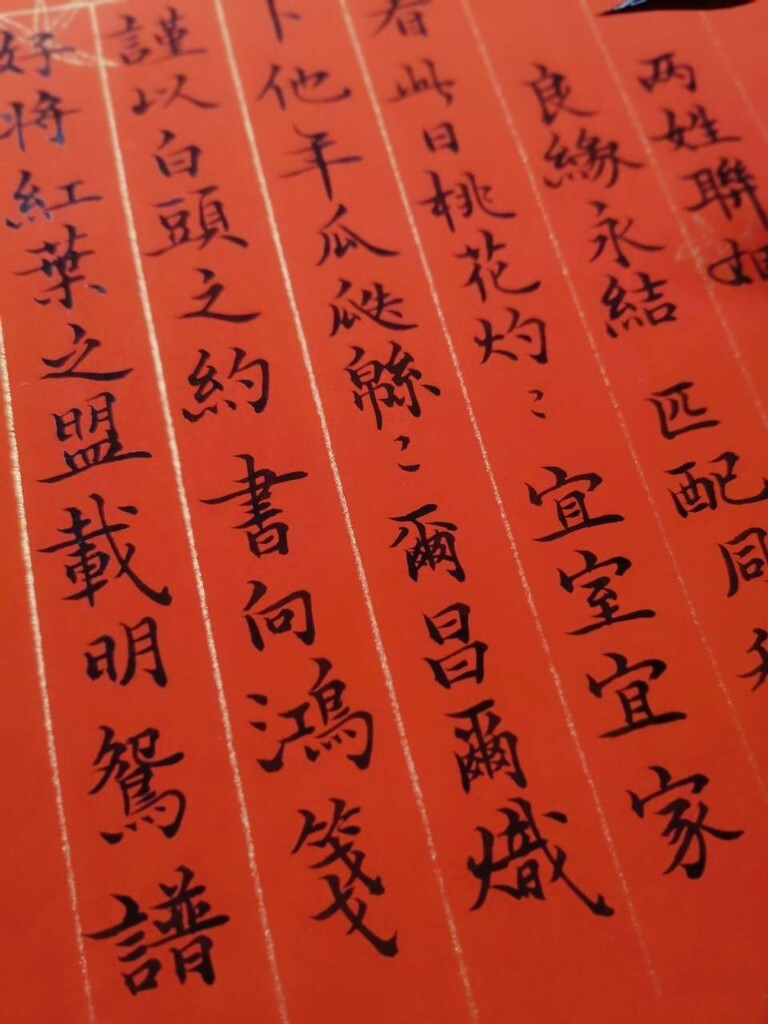 两姓聯姻
良緣永結 匹配同
看此日桃花灼〻 宜室宜家
卜他年瓜瓞緜〻 爾昌爾熾
謹以白頭之約 書向鴻箋
好將紅葉之盟 載明鴛譜